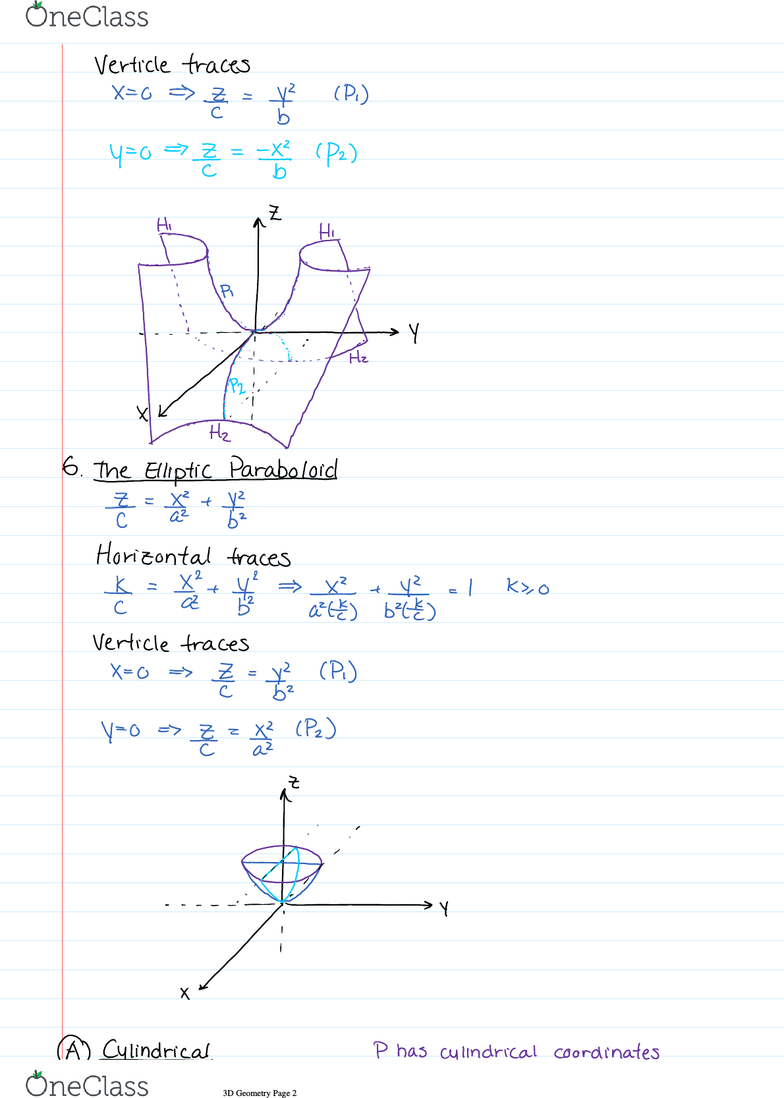 OneClass
Verticle traces
x=0 ⇒ z/c = y²/b (P₁)
y=0 ⇒ z/c = -x²/b (P₂)
Z
H₁
H₁
P₁
Y
H₂
P₂
X
H₂
6. The Elliptic Paraboloid
z/c = x²/a² + y²/b²
Horizontal traces
k/c = x²/a² + y²/b² ⇒ x²/a²(k/c) + y²/b²(k/c) = 1 k≥0
Verticle traces
x=0 ⇒ z/c = y²/b² (P₁)
y=0 ⇒ z/c = x²/a² (P₂)
Z
Y
X
(A) Cylindrical P has cylindrical coordinates
OneClass
3D Geometry Page 2